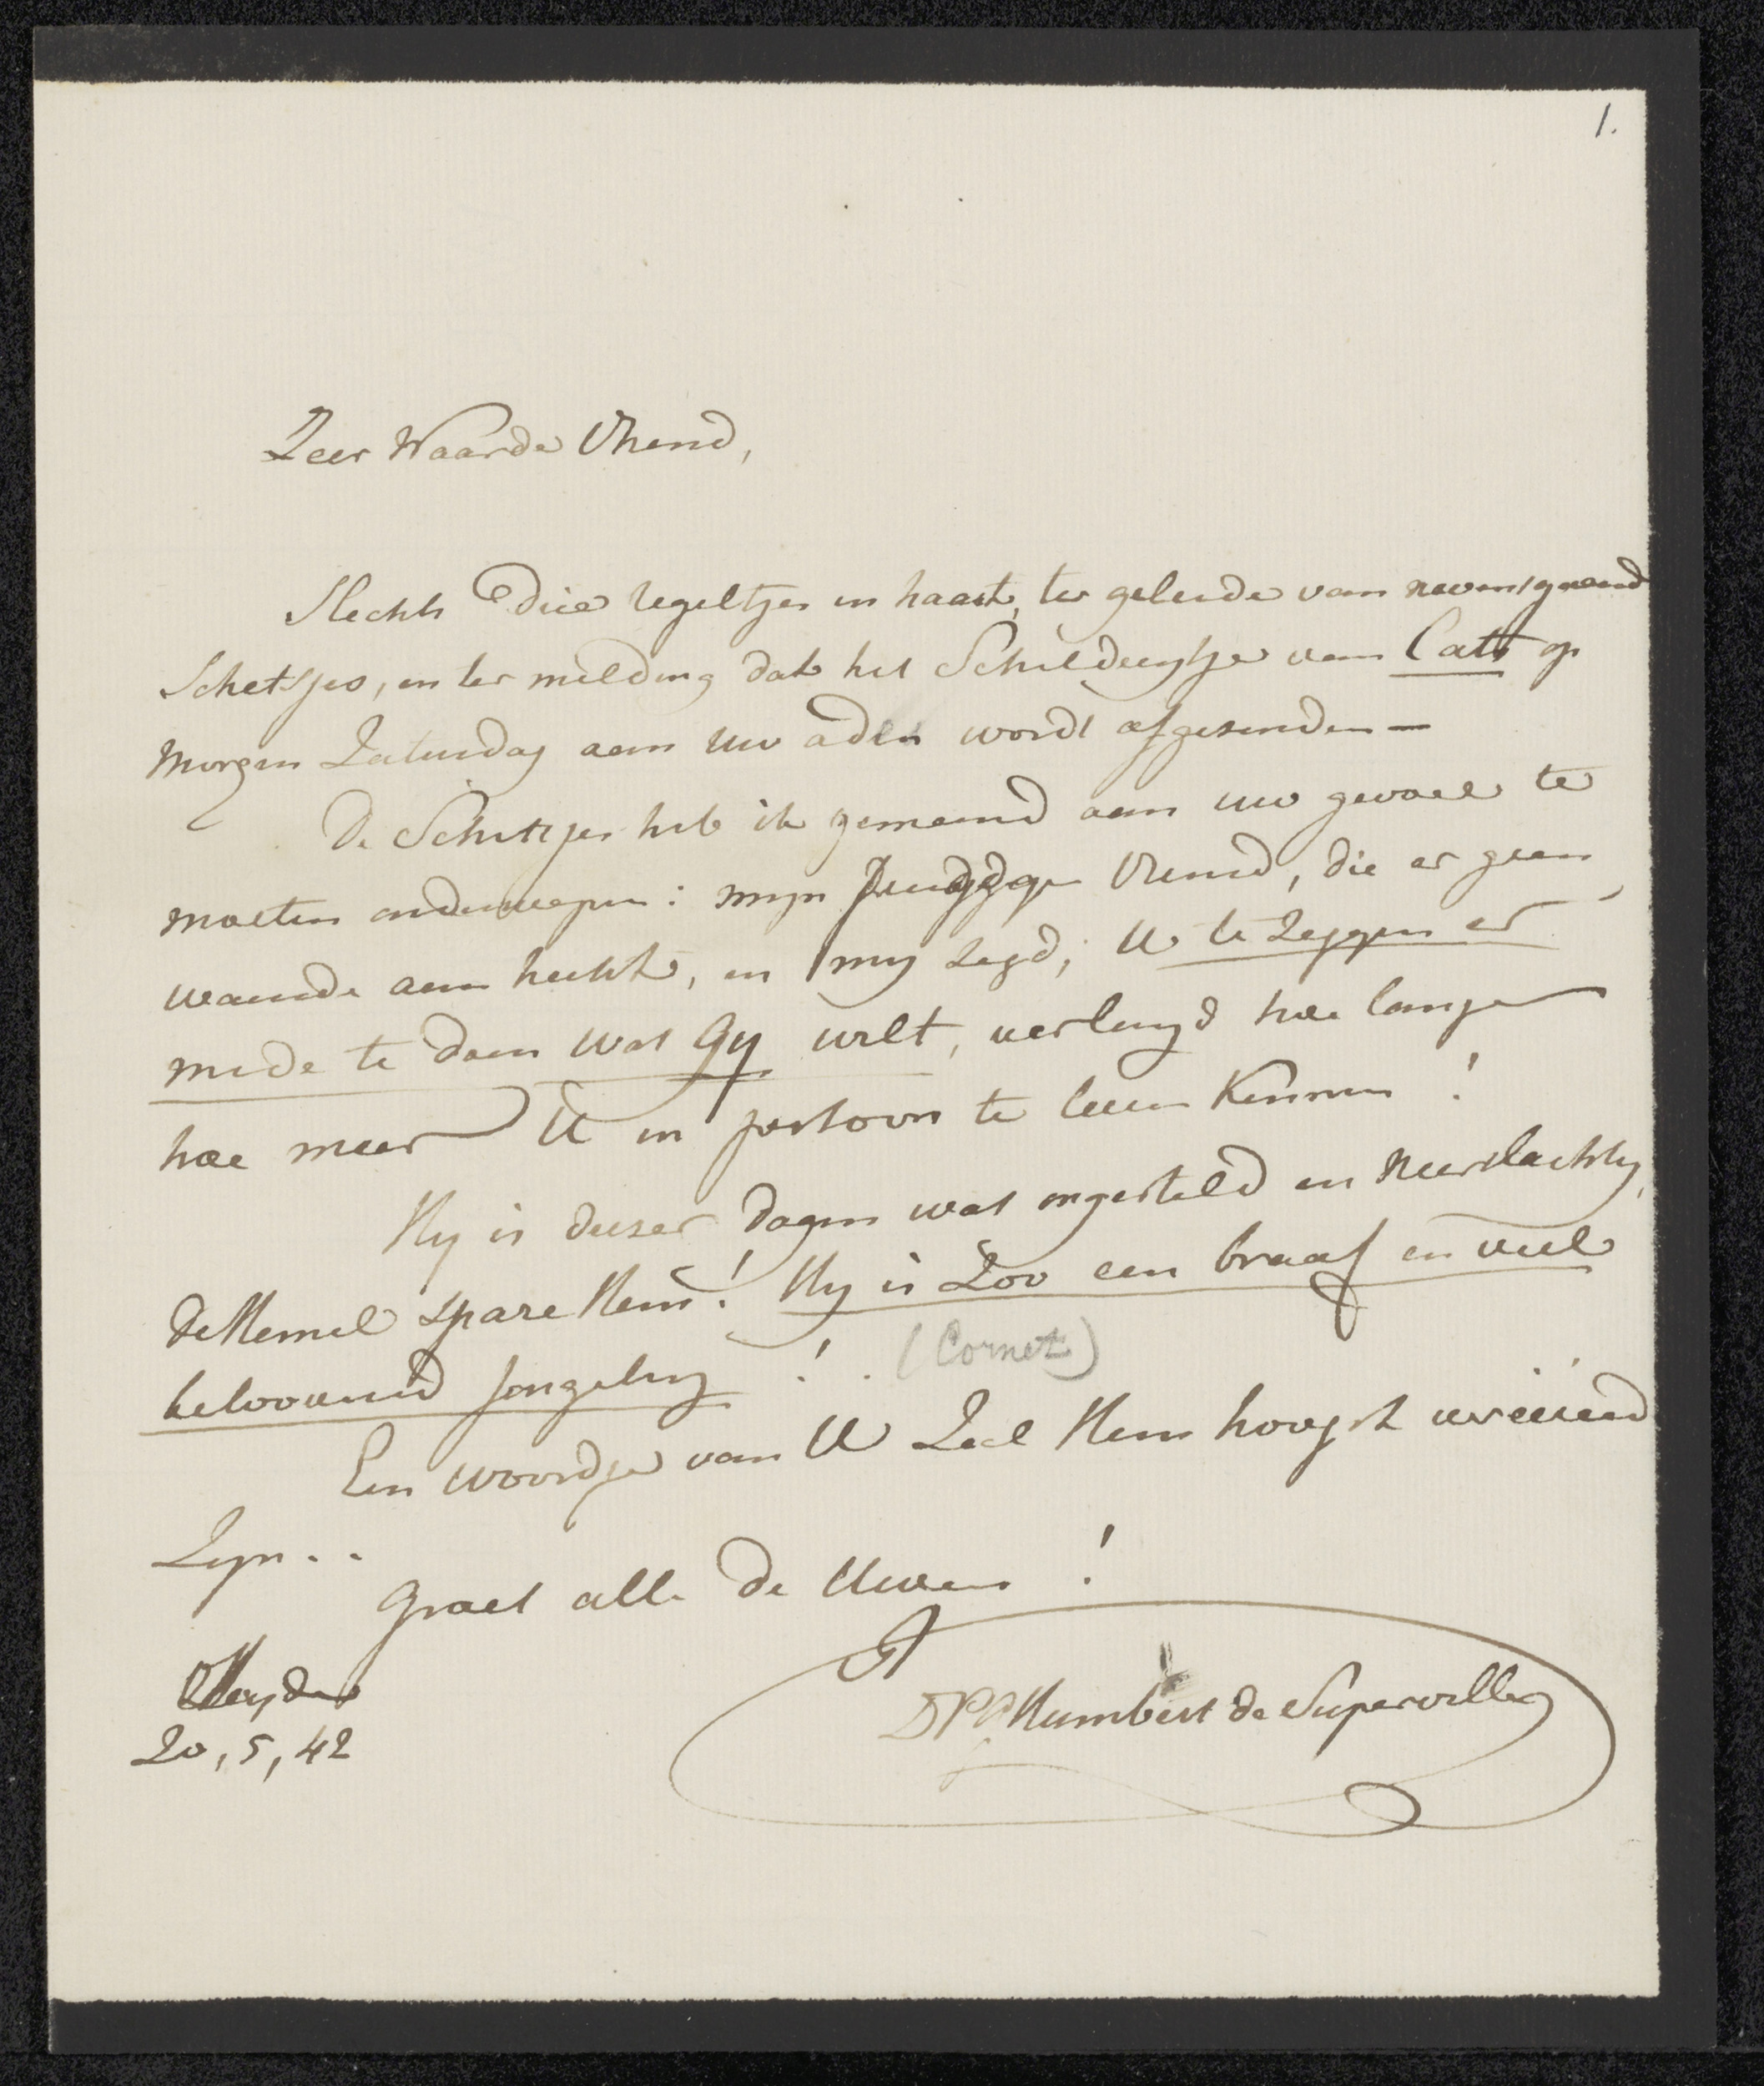 1.
Zeer Waarde Vriend,
Slechts drie regeltjes in haast, ter geleide van nevensgaand
Schetsjes, en ter melding dat het Schilderytje van Catt op
morgen Zaturdag aan uw adres wordt afgezonden —
De Schetsjes heb ik gemeend aan uw gevoel te
moeten onderwerpen: myn Jeugdige Vriend, die er geen
waarde aan hecht, en my zegd, U te zeggen er
mede te doen wat Gy wilt, verlangd hoe langer
hoe meer U in persoon te leeren Kennen!
Hy is deezer dagen wat ongesteld en Neerslachtig,
de Hemel spare Hem! Hy is Zoo een braaf en veel
beloovend Jongeling!.
(Cornet)
Een woordje van U Zal Hem hoogst
Zyn..
Groet alle de Uwen!
Leyden
20, 5, 42
DPG Humbert de Superville